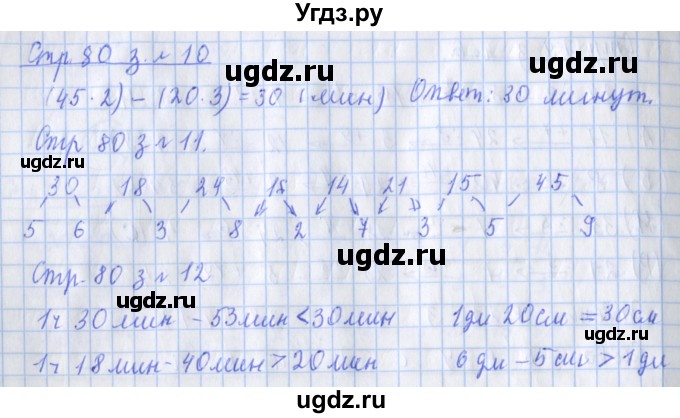 Угдз.ру
Стр. 80 з. № 10
ugdz.ru ugdz.ru
(45·2) – (20·3) = 30 (мин) Ответ: 30 минут.
Стр 80 з № 11.
ugdz.ru ugdz.ru
30 18 24 16 14 21 15 45
5 6 3 8 2 7 3 5 9
ugdz.ru
Стр. 80 з № 12
ugdz.ru
1ч 30мин – 53мин < 30мин 1дм 20см = 30см
ugdz.ru
1ч 18мин – 40мин > 20мин 6дм – 5см > 1дм
ugdz.ru ugdz.ru